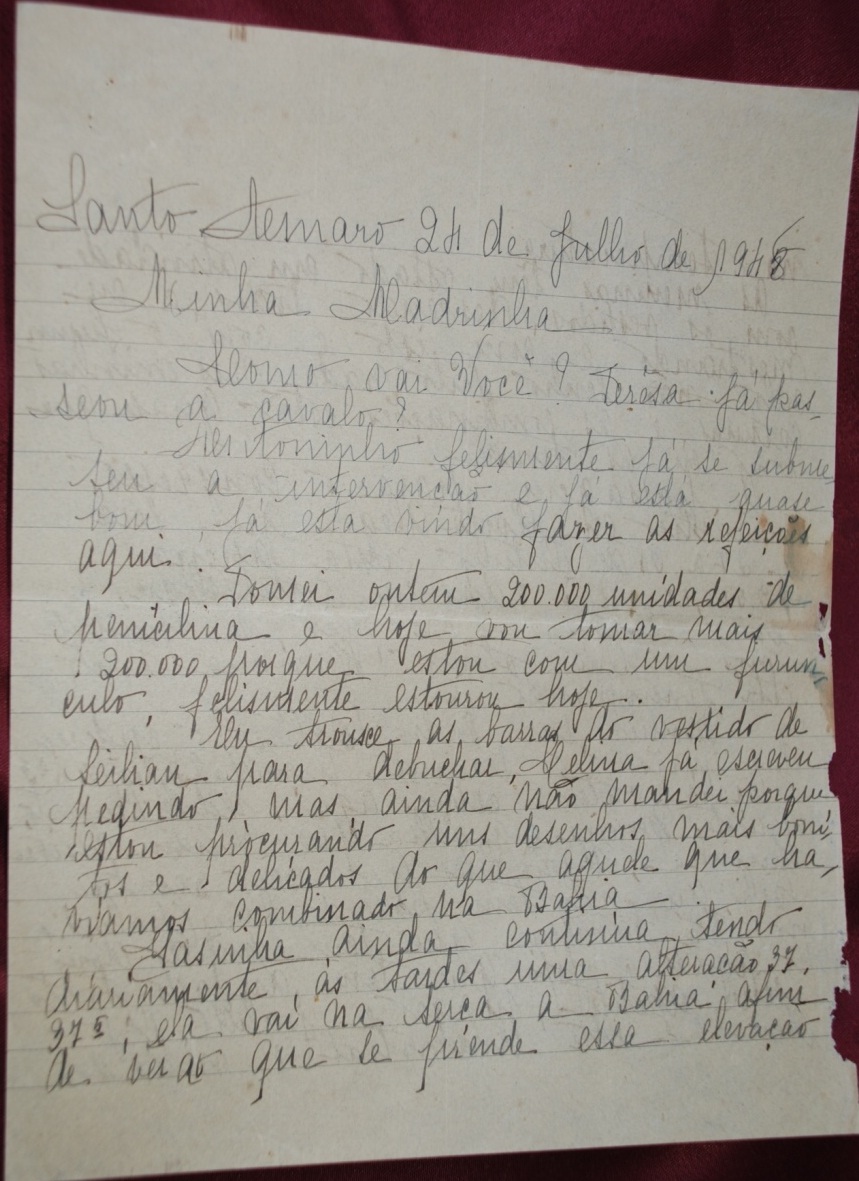 Santo Amaro 24 de Julho de 1948
Minha Madrinha
Como vai Você? Terêsa já pas-
seou a cavalo?
Antoninho felismente já se subme-
teu a intervenção e já está quase
bom, já esta vindo fazer as refeições
aqui.
Tomei ontem 200.000 unidades de
Penicilina e hoje vou tomar mais
200.000 porque estou com um furun-
culo, felismente estourou hoje.
Eu trousce as barras do vestido de
para debuchar, já escreveu
pedindo, mas ainda não mandei porque
estou procurando uns desenhos mais boni-
tos e delicados do que aquele que ha-
viamos combinado na Bahia
ainda continua tendo
diariamente, às tardes uma alteração 37,
37 5, ela vai na terça a Bahia, afim
de ver ao que se prende essa elevação